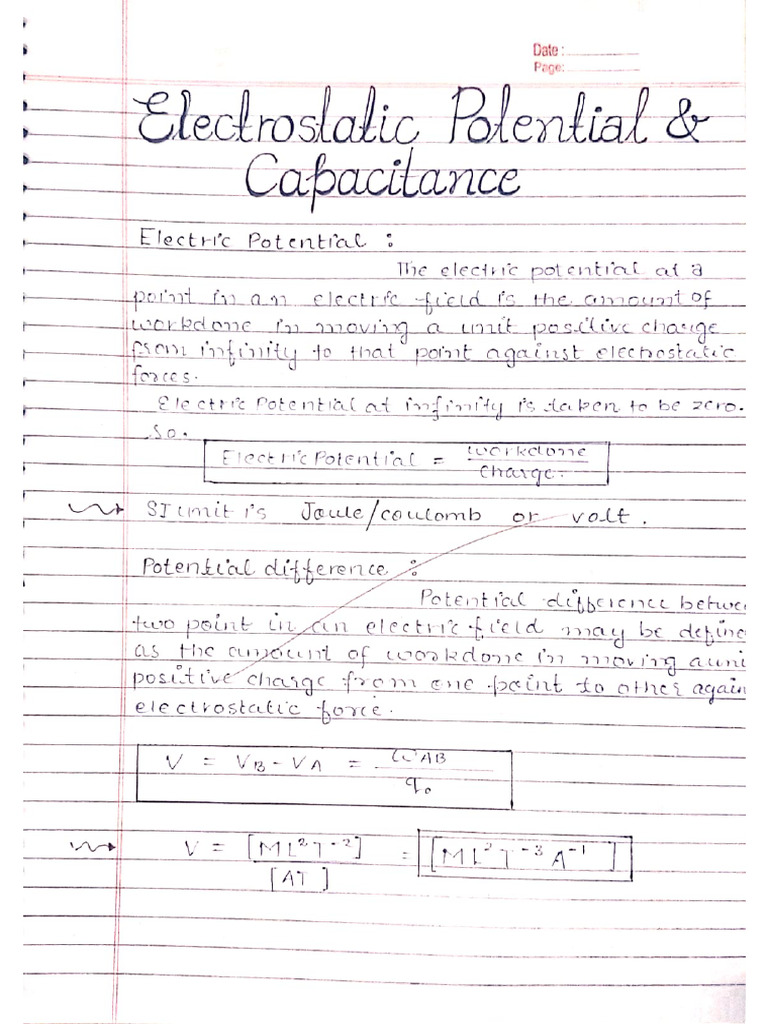 Date :
Page:
Electrostatic Potential &
Capacitance
Electric Potential :
The electric potential at a
point in an electric field is the amount of
workdone in moving a unit positive charge
from infinity to that point against electrostatic
forces.
Electric Potential at infinity is taken to be zero.
So.
Electric Potential = workdone / charge.
SI unit is Joule/coulomb or volt.
Potential difference :
Potential difference betwe
two point in an electric field may be define
as the amount of workdone in moving a uni
positive charge from one point to other again
electrostatic force.
V = VB - VA = WAB / q₀
V = [ML²T⁻²] / [AT] = [ML²T⁻³A⁻¹]